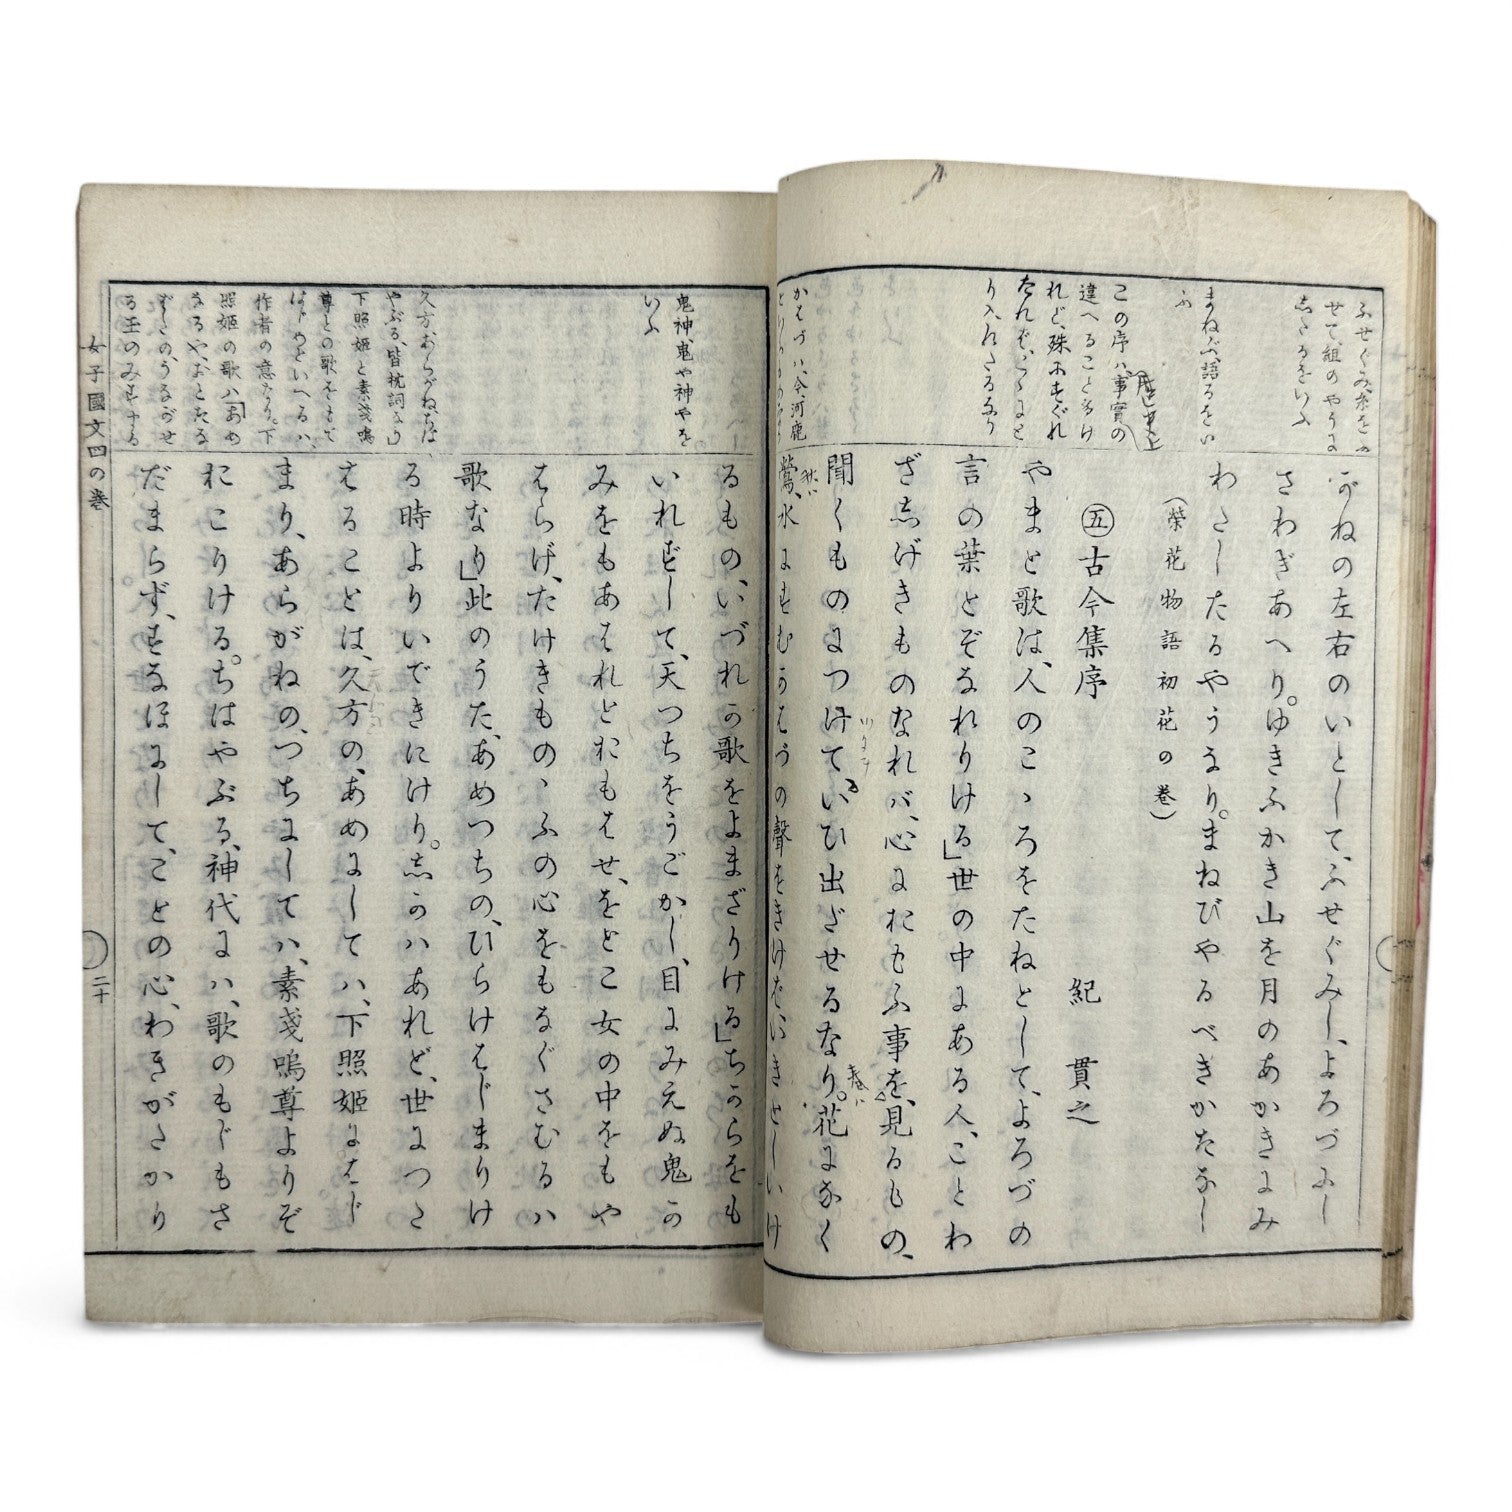 ふせぐみ、糸をふ
せて、組のやうに
したるをいふ
まねぶ、語るをい
ふ
この序ハ、事實の
歴史上
違へること多け
れど、殊にすぐれ
たれバ、こゝにと
り入れたるなり
かはづハ、今、河鹿
といふものなり
がねの左右のいとして、ふせぐみし、よろづにし
さわぎあへり。ゆきふかき山を月のあかきにみ
わたしたるやうなり。まねびやるべきかたなし
(榮花物語初花の卷)
㊄古今集序　紀貫之
やまと歌は、人のこゝろをたねとして、よろづの
言の葉とぞなれりける」世の中にある人、ことわ
ざしげきものなれバ、心におもふ事を、見るもの、
聞くものにつけて、いひ出だせるなり。花になく
春ハ
鶯、水にすむかはづの聲をきけば、いきとしいけ
秋ハ
鬼神、鬼や神やを
いふ
久方、あらがね、ちは
やぶる、皆枕詞なり
下照姫と素戔嗚
尊との歌をもて
はじめといへるハ、
作者の意なり。下
照姫の歌ハ「あめ
なるや、おとたな
ばたの、うながせ
る玉のみすまる
るもの、いづれか歌をよまざりける」ちからをも
いれずして、天つちをうごかし、目にみえぬ鬼か
みをもあはれとおもはせ、をとこ女の中をもや
はらげ、たけきものゝふの心をもなぐさむるハ
歌なり」此のうた、あめつちの、ひらけはじまりけ
る時よりいできにけり。しかハあれど、世につた
はることは、久方の、あめにしてハ、下照姫にはじ
まり、あらがねの、つちにしてハ、素戔嗚尊よりぞ
おこりける。ちはやぶる、神代にハ、歌のもじもさ
だまらず、すなほにして、ことの心、わきがたかり
女子國文四の卷　二十